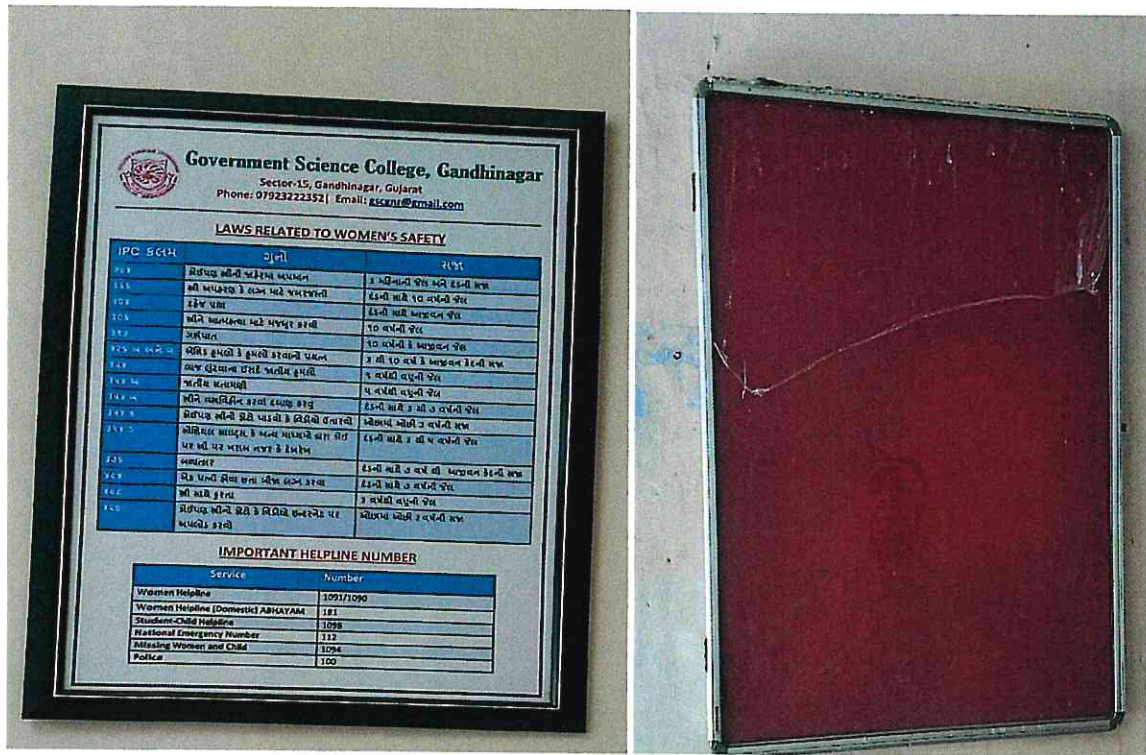 Government Science College, Gandhinagar
Sector-15, Gandhinagar, Gujarat
Phone: 07923222352| Email: gscgnr@gmail.com
LAWS RELATED TO WOMEN'S SAFETY
IPC કલમ ગુનો સજા
કોઈપણ સ્ત્રીની જાહેરમાં અપમાન ૩ મહિનાની જેલ અને દંડની સજા
સ્ત્રી અપહરણ કે લગ્ન માટે જબરજસ્તી દંડની સાથે ૧૦ વર્ષની જેલ
દહેજ પ્રથા દંડની સાથે આજીવન જેલ
સ્ત્રીને આત્મહત્યા માટે મજબુર કરવી ૧૦ વર્ષની જેલ
ગર્ભપાત ૧૦ વર્ષની કે આજીવન જેલ
એસિડ હુમલો કે હુમલો કરવાનો પ્રયત્ન ૩ થી ૧૦ વર્ષ કે આજીવન કેદની સજા
લાજ લુંટવાના ઈરાદે જાતીય હુમલો ૧ વર્ષથી વધુની જેલ
જાતીય સતામણી ૫ વર્ષથી વધુની જેલ
સ્ત્રીને વસ્ત્રવિહીન કરવા દબાણ કરવું દંડની સાથે ૩ થી ૭ વર્ષની જેલ
કોઈપણ સ્ત્રીનો ફોટો પાડવો કે વિડીયો ઉતારવો ઓછામાં ઓછી ૩ વર્ષની સજા
સોશિયલ સાઇટ્સ કે અન્ય માધ્યમો દ્વારા કોઈ દંડની સાથે ૩ થી ૫ વર્ષની જેલ
પર સ્ત્રી પર ખરાબ નજર કે દેખરેખ
બળાત્કાર દંડની સાથે ૭ વર્ષ થી આજીવન કેદની સજા
એક પત્ની હોવા છતા બીજા લગ્ન કરવા દંડની સાથે ૭ વર્ષની જેલ
સ્ત્રી સાથે ક્રુરતા ૩ વર્ષથી વધુની જેલ
કોઈપણ સ્ત્રીનો ફોટો કે વિડીયો ઇન્ટરનેટ પર ઓછામાં ઓછી ૩ વર્ષની સજા
અપલોડ કરવો
IMPORTANT HELPLINE NUMBER
Service Number
Women Helpline 1091/1090
Women Helpline (Domestic) ABHAYAM 181
Student-Child Helpline 1098
National Emergency Number 112
Missing Women and Child 1094
Police 100